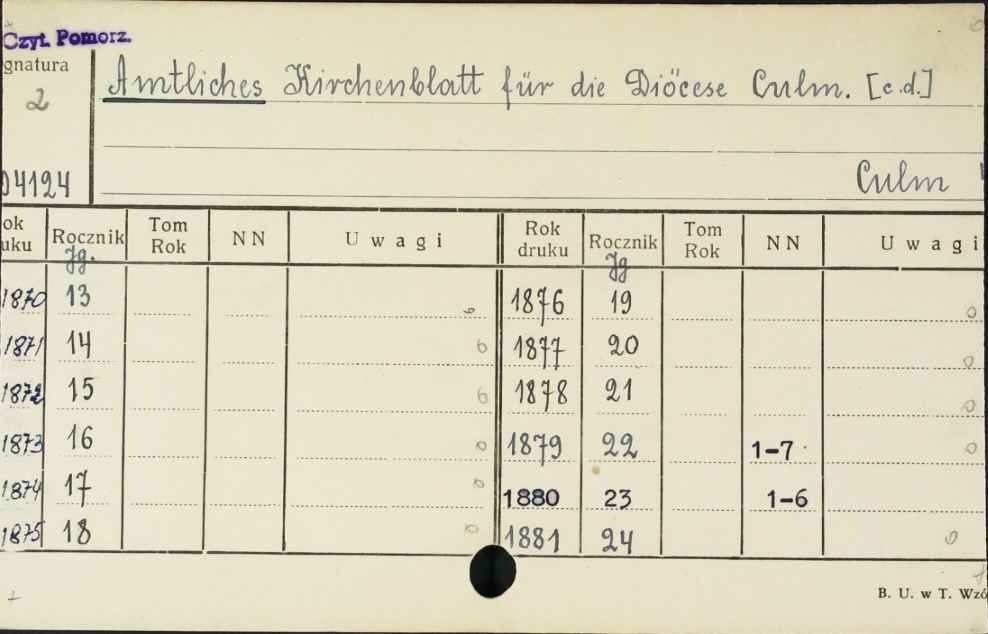 Czyt. Pomorz.
gnatura
2
04124
Amtliches Kirchenblatt für die Diöcese Culm. [c.d.]
Culm
ok
uku Rocznik Jg. Tom Rok NN Uwagi Rok druku Rocznik Jg Tom Rok NN Uwagi
1870 13 1876 19 0
1871 14 6 1877 20 0
1872 15 6 1878 21 0
1873 16 0 1879 22 1-7 0
1874 17 0 1880 23 1-6
1875 18 0 1881 24 0
B. U. w T. Wzó